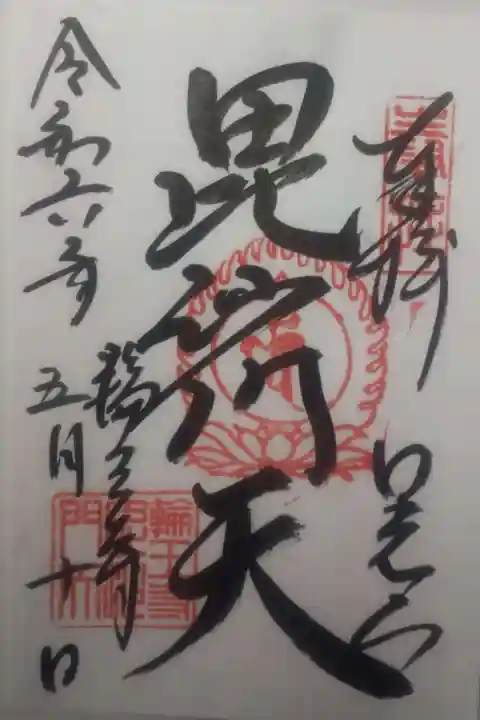 奉拝 日光山
毘沙門天
輪王寺
令和六年五月十日
輪王寺